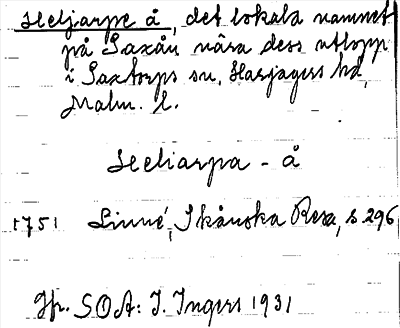 Heljarpe å, det lokala namnet
på Saxån nära dess utlopp
i Saxtorps sn, Harjagers hd,
Malm. l.
Heeliarpa - å
1751 Linné, Skånska Resa, s 296
Jfr. SOA: J. Ingers 1931